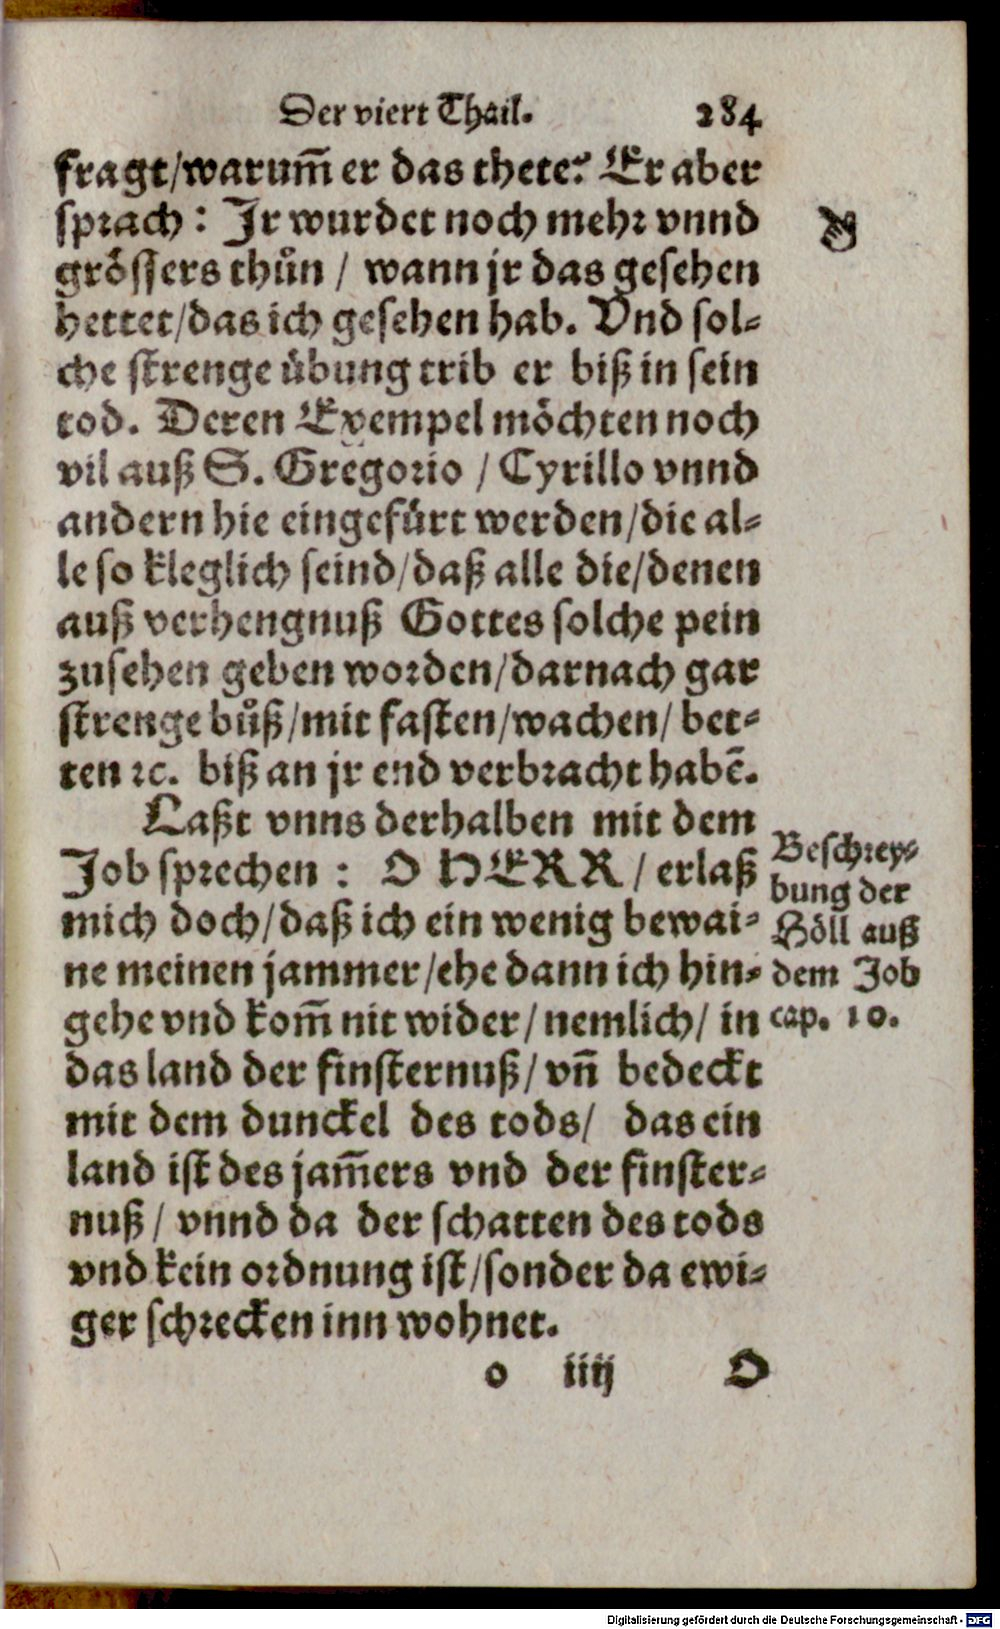 Der viert Thail. 284
fragt/warum̄ er das thete? Er aber
sprach: Jr wurdet noch mehr vnnd
grössers thůn / wann jr das gesehen
hettet/das ich gesehen hab. Vnd sol-
che strenge übung trib er biß in sein
tod. Deren Exempel möchten noch
vil auß S. Gregorio / Cyrillo vnnd
andern hie eingefürt werden/die al-
le so kleglich seind/daß alle die/denen
auß verhengnuß Gottes solche pein
zusehen geben worden/darnach gar
strenge bůß/mit fasten/wachen/ bet-
ten ꝛc. biß an jr end verbracht habē.
Laßt vnns derhalben mit dem
Job sprechen : O HERR / erlaß
mich doch/daß ich ein wenig bewai-
ne meinen jammer/ehe dann ich hin-
gehe vnd kom̄ nit wider/nemlich/ in
das land der finsternuß/ vn̄ bedeckt
mit dem dunckel des tods/ das ein
land ist des jam̄ers vnd der finster-
nuß/ vnnd da der schatten des tods
vnd kein ordnung ist/sonder da ewi-
ger schrecken inn wohnet.
Beschrey-
bung der
Höll auß
dem Job
cap. 10.
o iiij O
Digitalisierung gefördert durch die Deutsche Forschungsgemeinschaft - DFG